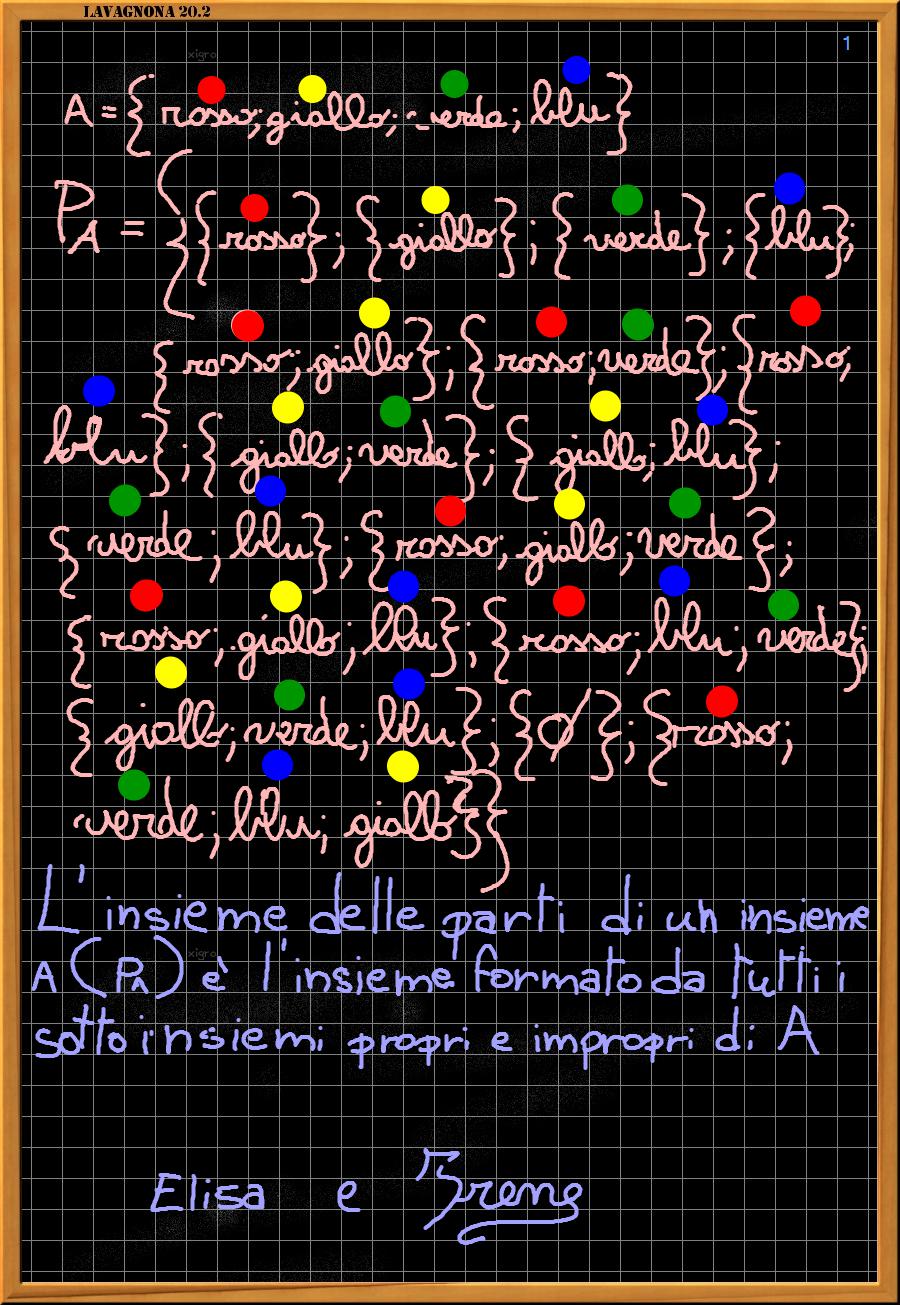 LAVAGNONA 20.2
1
xigro
A = { rosso; giallo; verde; blu }
P A = { { rosso }; { giallo }; { verde }; { blu };
{ rosso; giallo }; { rosso; verde }; { rosso;
blu }; { giallo; verde }; { giallo; blu };
{ verde; blu }; { rosso; giallo; verde };
{ rosso; giallo; blu }; { rosso; blu; verde };
{ giallo; verde; blu }; { Ø }; { rosso;
verde; blu; giallo } }
L'insieme delle parti di un insieme
xigro
A (PA) è l'insieme formato da tutti i
sottoinsiemi propri e impropri di A
Elisa e Irene